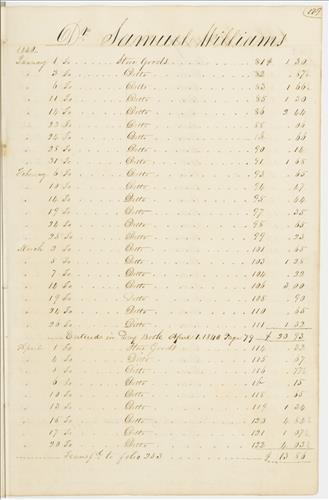 Dr Samuel Williams
1840
January 1 To Store Goods 81 $ 1 50
" 3 To Ditto 82
" 6 To Ditto 83 1 66
" 11 To Ditto 85 1 50
" 14 To Ditto 86 2 44
" 22 To Ditto 88
" 24 To Ditto
" 28 To Ditto 90
" 31 To Ditto 91 1 68
February 6 To Ditto 93 65
" To Ditto 94 47
" 14 To Ditto 95 44
" 19 To Ditto 97 35
" To Ditto 98 65
" To Ditto 99 23
March 2 To Ditto 101 65
" 5 To Ditto 103 1 28
" 7 To Ditto 104 22
" To Ditto 106 3 00
" 19 To Ditto 108 90
" 24 To Ditto 110 65
" 26 To Ditto 111 1 32
Entered in Day Book April 1. 1840 Page 79 $ 20 93
April 1 To Store Goods 114
" 4 To Ditto 115 67
" To Ditto 116
" 6 To Ditto " 15
" 10 To Ditto 118 65
" 13 To Ditto 119 1 24
" 16 To Ditto 120 4
" 17 To Ditto 121 1
" 20 To Ditto 122 4
Transfd to folio 253 $ 13 86